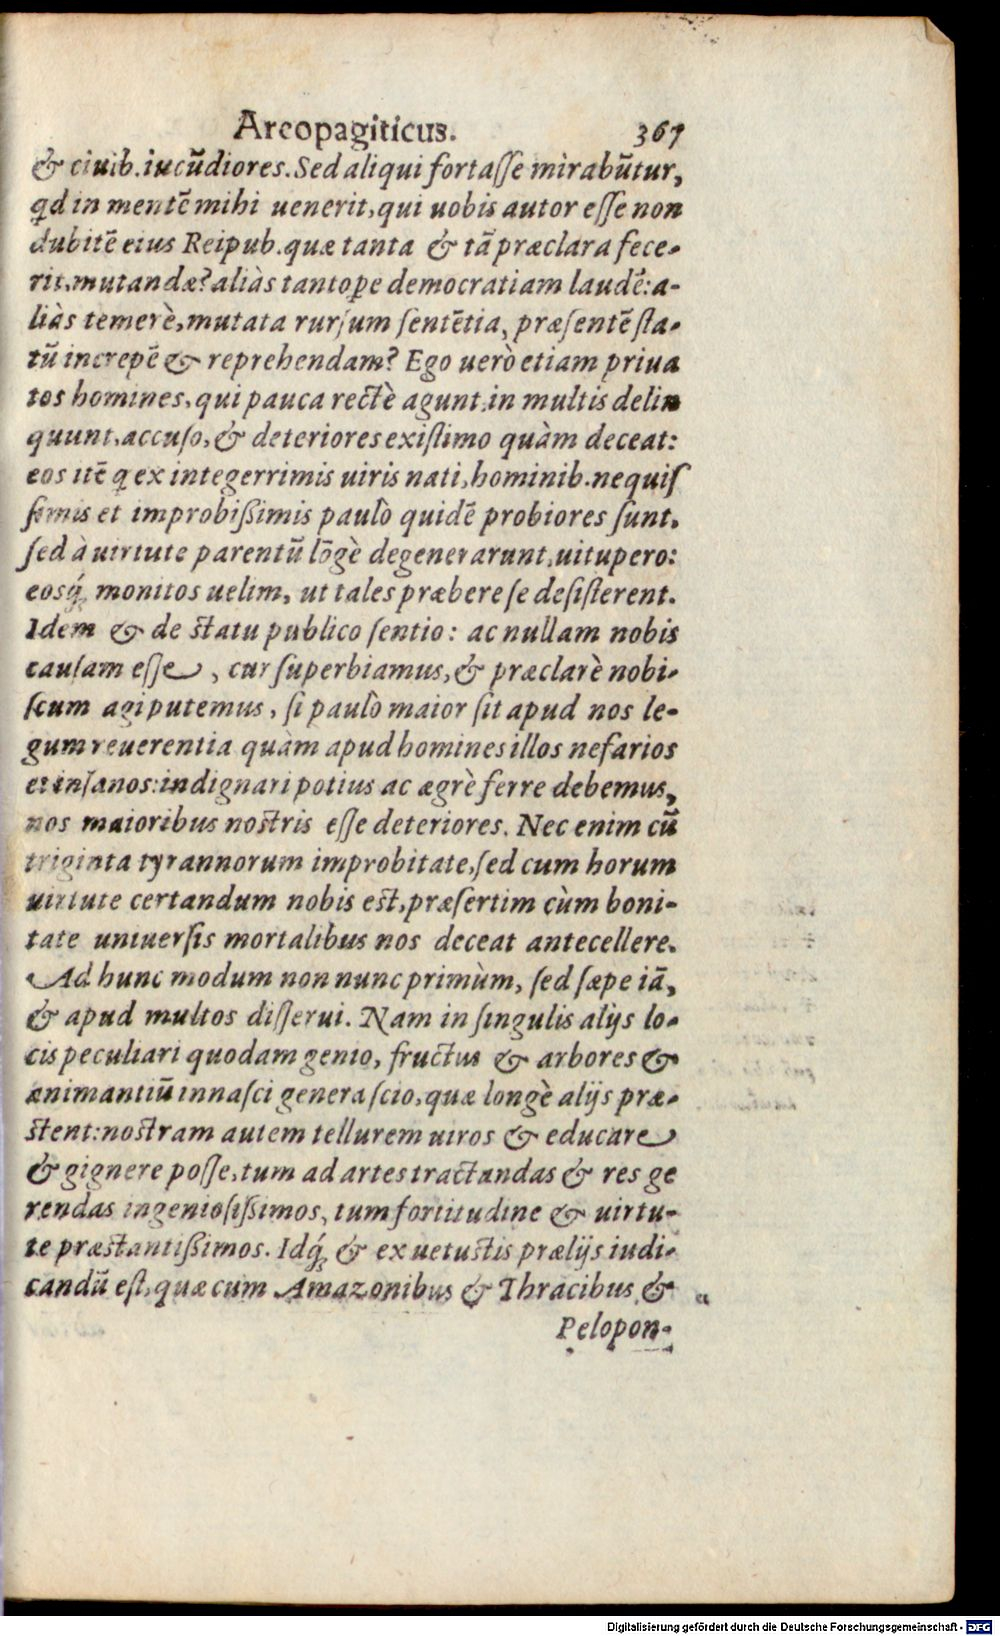 Areopagiticus. 367
& ciuib. iucūdiores. Sed aliqui fortaſſe mirabūtur,
qd in mentē mihi uenerit, qui uobis autor eſſe non
dubitē eius Reipub. quæ tanta & tā præclara fece-
rit, mutandæ? aliàs tantoꝑe democratiam laudē: a-
liàs temerè, mutata rurſum ſentētia, præſentē ſta-
tū increpē & reprehendam? Ego uerò etiam priua
tos homines, qui pauca rectè agunt, in multis delin
quunt, accuſo, & deteriores exiſtimo quàm deceat:
eos itē q ex integerrimis uiris nati, hominib. nequiſ
ſimis et improbißimis paulò quidē probiores ſunt,
ſed à uirtute parentū lōgè degenerarunt, uitupero:
eosq́; monitos uelim, ut tales præbere ſe deſiſterent.
Idem & de ſtatu publico ſentio: ac nullam nobis
cauſam eſſe, cur ſuperbiamus, & præclarè nobi-
ſcum agi putemus, ſi paulò maior ſit apud nos le-
gum reuerentia quàm apud homines illos nefarios
et inſanos: indignari potius ac ægrè ferre debemus,
nos maioribus noſtris eſſe deteriores. Nec enim cū
triginta tyrannorum improbitate, ſed cum horum
uirtute certandum nobis eſt, præſertim cùm boni-
tate uniuerſis mortalibus nos deceat antecellere.
Ad hunc modum non nunc primùm, ſed ſæpe iā,
& apud multos diſſerui. Nam in ſingulis alijs lo-
cis peculiari quodam genio, fructus & arbores &
animantiū innaſci genera ſcio, quæ longè alijs præ-
ſtent: noſtram autem tellurem uiros & educare
& gignere poſſe, tum ad artes tractandas & res ge
rendas ingenioſißimos, tum fortitudine & uirtu-
te præſtantißimos. Idq́; & ex uetuſtis prælijs iudi-
candū eſt, quæ cum Amazonibus & Thracibus &
a
Pelopon-
Digitalisierung gefördert durch die Deutsche Forschungsgemeinschaft - DFG